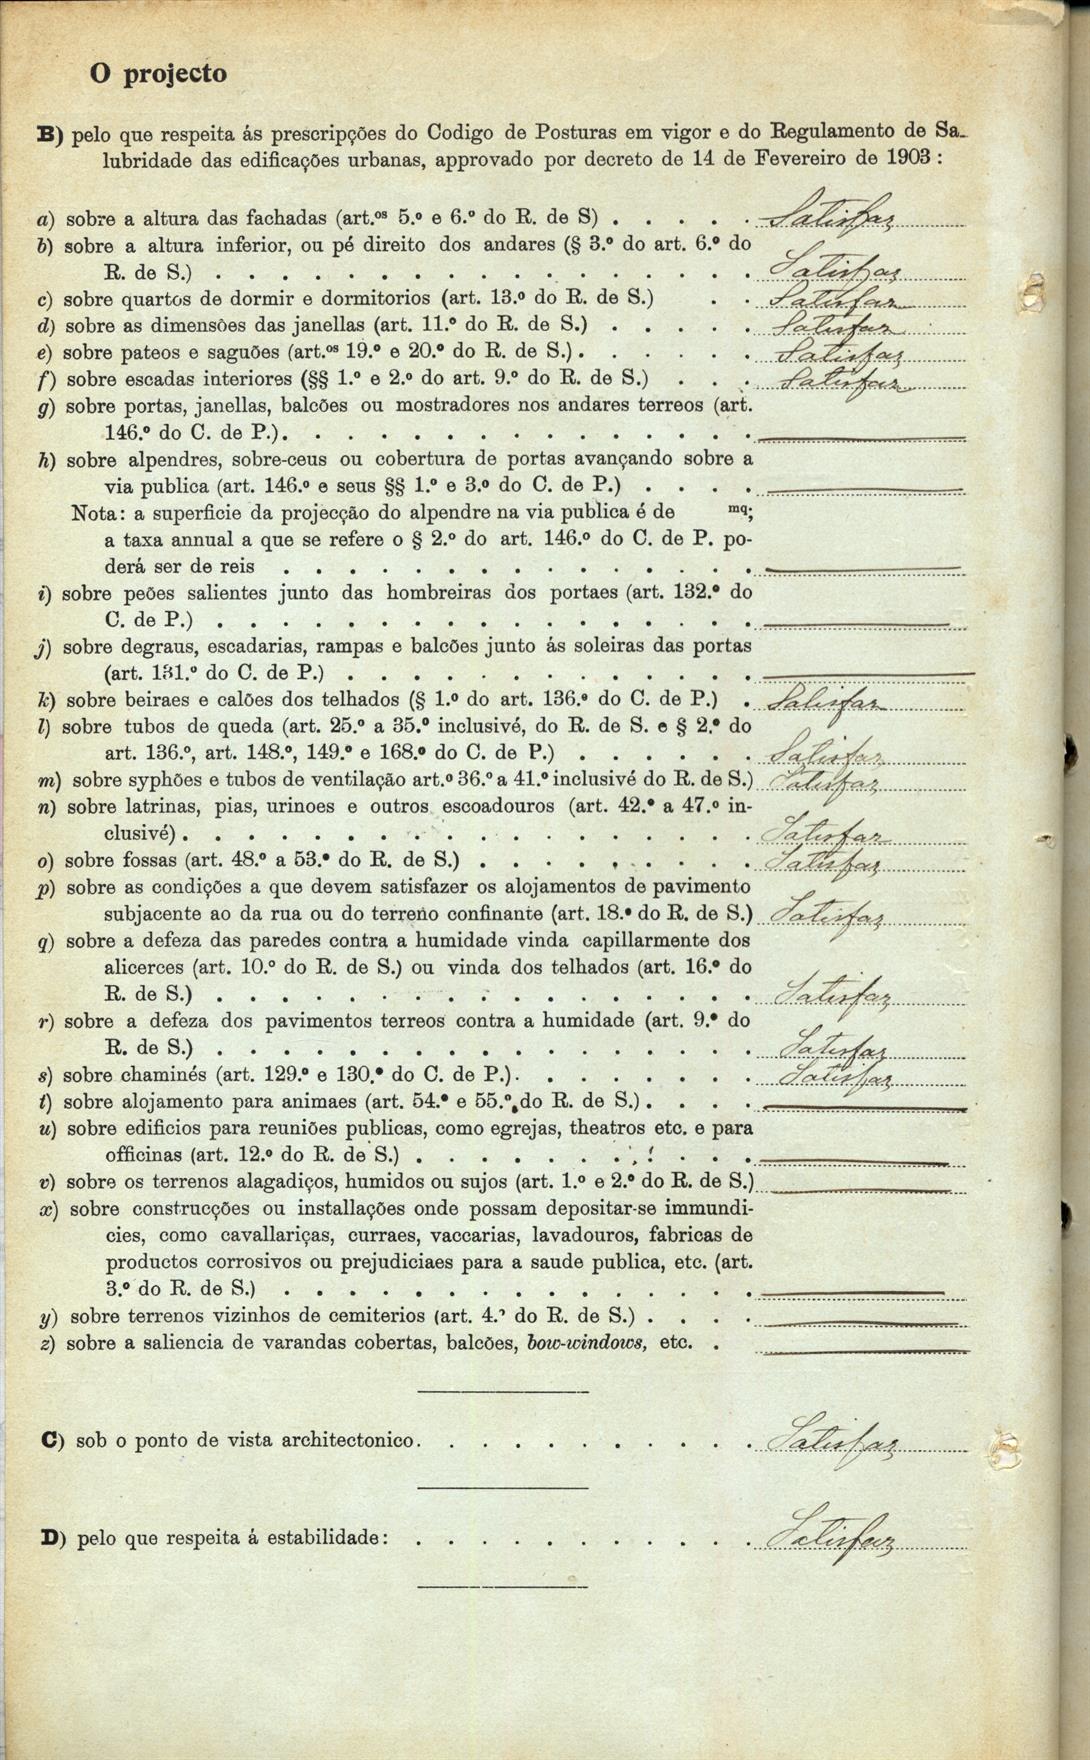 O projecto
B) pelo que respeita ás prescripções do Codigo de Posturas em vigor e do Regulamento de Sa-
lubridade das edificações urbanas, approvado por decreto de 14 de Fevereiro de 1903 :
a) sobre a altura das fachadas (art.os 5.º e 6.º do R. de S) . . . . . Satisfaz
b) sobre a altura inferior, ou pé direito dos andares (§ 3.º do art. 6.º do
R. de S.) . . . . . . . . . . . . . . . . . Satisfaz
c) sobre quartos de dormir e dormitorios (art. 13.º do R. de S.) . . Satisfaz
d) sobre as dimensões das janellas (art. 11.º do R. de S.) . . . . . Satisfaz
e) sobre pateos e saguões (art.os 19.º e 20.º do R. de S.) . . . . . . . Satisfaz
f) sobre escadas interiores (§§ 1.º e 2.º do art. 9.º do R. de S.) . . . Satisfaz
g) sobre portas, janellas, balcões ou mostradores nos andares terreos (art.
146.º do C. de P.). . . . . . . . . . . . . . .
h) sobre alpendres, sobre-ceus ou cobertura de portas avançando sobre a
via publica (art. 146.º e seus §§ 1.º e 3.º do C. de P.) . . . .
Nota: a superficie da projecção do alpendre na via publica é de mq;
a taxa annual a que se refere o § 2.º do art. 146.º do C. de P. po-
derá ser de reis . . . . . . . . . . . . . . .
i) sobre peões salientes junto das hombreiras dos portaes (art. 132.º do
C. de P.) . . . . . . . . . . . . . . . . .
j) sobre degraus, escadarias, rampas e balcões junto ás soleiras das portas
(art. 131.º do C. de P.) . . . . . . . . . . . . .
k) sobre beiraes e calões dos telhados (§ 1.º do art. 136.º do C. de P.) . Satisfaz
l) sobre tubos de queda (art. 25.º a 35.º inclusivé, do R. de S. e § 2.º do
art. 136.º, art. 148.º, 149.º e 168.º do C. de P.) . . . . . . Satisfaz
m) sobre syphões e tubos de ventilação art.º 36.º a 41.º inclusivé do R. de S.) Satisfaz
n) sobre latrinas, pias, urinoes e outros escoadouros (art. 42.º a 47.º in-
clusivé) . . . . . . . . . . . . . . . . . . Satisfaz
o) sobre fossas (art. 48.º a 53.º do R. de S.) . . . . . . . . . . Satisfaz
p) sobre as condições a que devem satisfazer os alojamentos de pavimento
subjacente ao da rua ou do terreno confinante (art. 18.º do R. de S.) Satisfaz
q) sobre a defeza das paredes contra a humidade vinda capillarmente dos
alicerces (art. 10.º do R. de S.) ou vinda dos telhados (art. 16.º do
R. de S.) . . . . . . . . . . . . . . . . . Satisfaz
r) sobre a defeza dos pavimentos terreos contra a humidade (art. 9.º do
R. de S.) . . . . . . . . . . . . . . . . . Satisfaz
s) sobre chaminés (art. 129.º e 130.º do C. de P.). . . . . . . . . Satisfaz
t) sobre alojamento para animaes (art. 54.º e 55.º do R. de S.) . . . .
u) sobre edificios para reuniões publicas, como egrejas, theatros etc. e para
officinas (art. 12.º do R. de S.) . . . . . . . . . . .
v) sobre os terrenos alagadiços, humidos ou sujos (art. 1.º e 2.º do R. de S.)
x) sobre construcções ou installações onde possam depositar-se immundi-
cies, como cavallariças, curraes, vaccarias, lavadouros, fabricas de
productos corrosivos ou prejudiciaes para a saude publica, etc. (art.
3.º do R. de S.) . . . . . . . . . . . . . . .
y) sobre terrenos vizinhos de cemiterios (art. 4.º do R. de S.) . . . .
z) sobre a saliencia de varandas cobertas, balcões, bow-windows, etc. .
C) sob o ponto de vista architectonico. . . . . . . . . . . Satisfaz
D) pelo que respeita á estabilidade: . . . . . . . . . . . Satisfaz